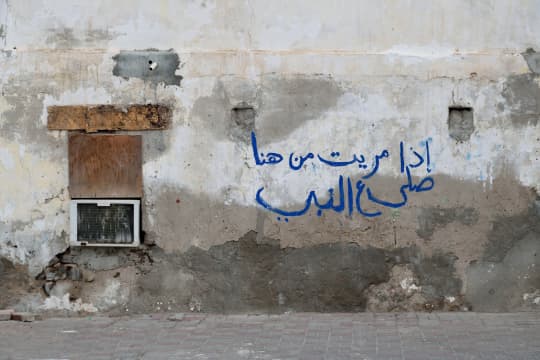 إذا مريت من هنا
صلي ع النبي